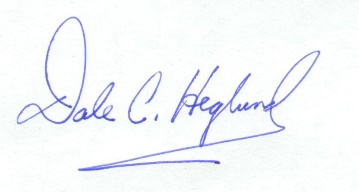 Dale C. Heglund